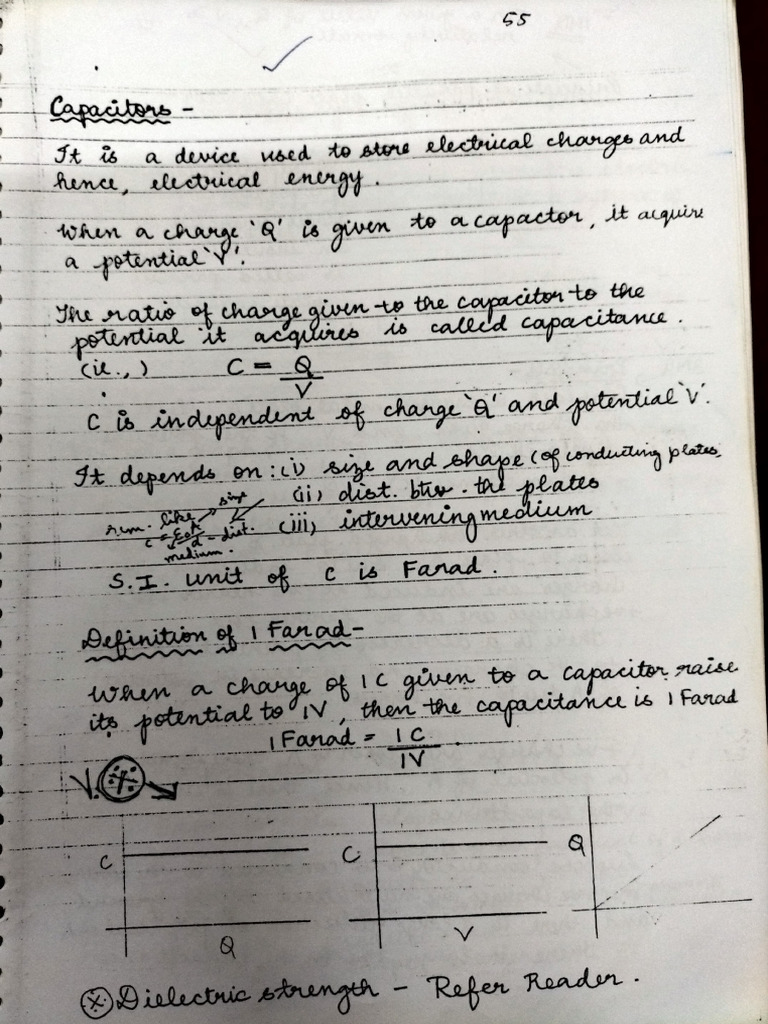 55
Capacitors -
It is a device used to store electrical charges and
hence, electrical energy.
When a charge 'Q' is given to a capactor, it acquire
a potential 'V'.
The ratio of charge given to the capacitor to the
potential it acquires is called capacitance.
(ie.,) C = Q/V
C is independent of charge 'Q' and potential 'V'.
It depends on : (i) size and shape (of conducting plates
(ii) dist. btw. the plates
(iii) intervening medium
rem. like
size
dist.
medium.
S.I. unit of C is Farad.
Definition of 1 Farad-
When a charge of 1C given to a capacitor raise
its potential to 1V, then the capacitance is 1 Farad
1 Farad = 1C/1V.
V.
C Q
C V
Q
Dielectric strength - Refer Reader.